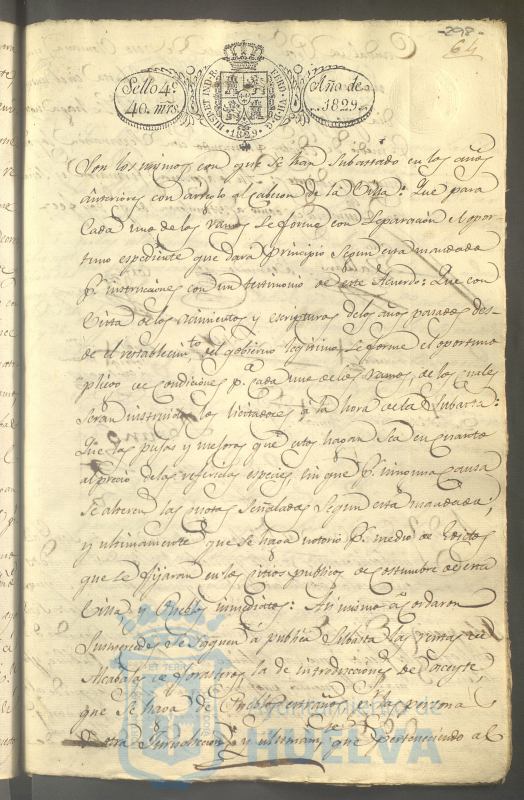 298
64
Sello 4º
40. mrs
HISP. ET IND. R. FERD. VII. D. G.
1829
Año de
1829
Son los mismos con que se han subastado en los años
anteriores con arreglo al cabezon de la Villa: Que para
cada uno de los ramos se forme con separacion el opor-
tuno espediente que dará principio segun está mandado
pr. instrucciones con un testimonio de este Acuerdo: Que con
vista de los y escripturas de los años pasados des-
de el restablecimto. del gobierno legitimo, se forme el oportuno
pliego de condiciones pa. cada uno de los ramos, de los cuales
seran instruidos los licitadores á la hora de la subasta:
Que las pujas y mejoras que estos hagan sea en cuanto
al precio de las referidas especies sin que pr. ninguna causa
se alteren las cuotas señaladas segun está mandado;
y ultimamente que se haga notorio pr. medio de Edictos
que se fijaran en los sitios publicos de costumbre de esta
Villa y Pueblos inmediatos: Asi mismo acordaron
sus mercedes se saquen á publica subasta las rentas de
Alcabalas de forasteros, la de introducciones de aceyte,
que se haga de Pueblos extraños pr. persona
de otra Jurisdiccion, y ultimamte. que perteneciendo al
Ayuntamiento de
HUELVA